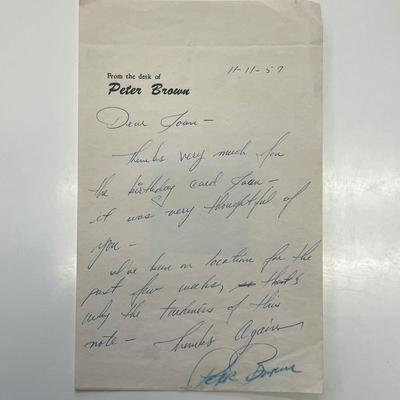 11-11-57
From the desk of
Peter Brown
Dear Joan -
Thanks very much for
the birthday card Joan -
it was very thoughtful of
you -
I've been on location for the
past few weeks, that's
why the tardiness of this
note - Thanks Again
Peter Brown